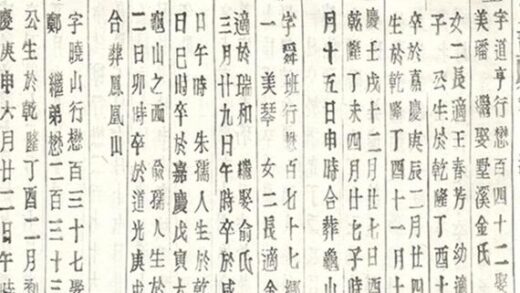 字道亨行懋百四十二娶
美璠 繼娶墅溪金氏
女二長適王春芳 幼適
子 公生於乾隆丁酉十
卒於嘉慶庚辰二月廿
生於乾隆丁酉十一月十
慶壬戌十二月廿七日酉
乾隆丁未四月廿子時
月十五日申時合葬龜山
字舜班行懋百七十七
一 美琴 女二長適金
適於瑞和 繼娶俞氏
三月廿九日午時卒於咸
日午時 朱孺人生於乾
日巳時卒於嘉慶戊寅六
龜山之西 俞孺人生於
二日卯時卒於道光庚戌
合葬鳳凰山
字曉山行懋百三十七娶
鄭 繼弟懋二百三十三
公生於乾隆丁酉二月初
慶庚申六月廿二日午時